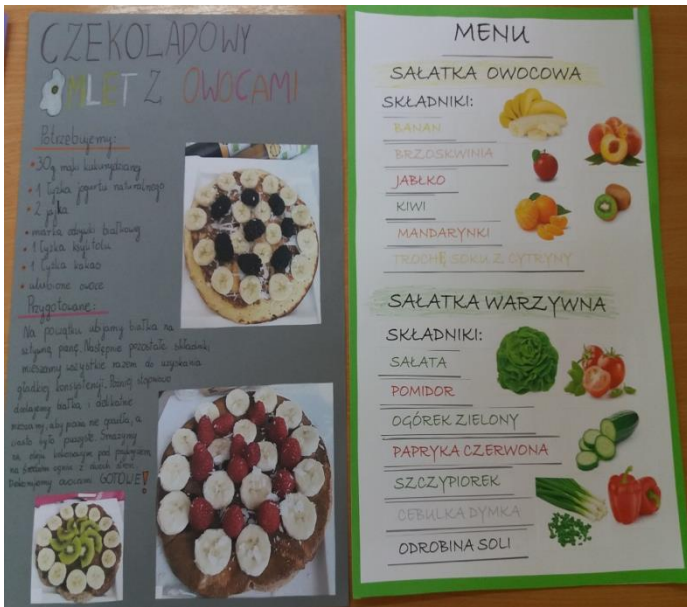 CZEKOLADOWY
OMLET Z OWOCAMI
Potrzebujemy:
• 30g mąki kukurydzianej
• 1 łyżka jogurtu naturalnego
• 2 jajka
• miarka odżywki białkowej
• 1 łyżka ksylitolu
• 1 łyżka kakao
• ulubione owoce
Przygotowanie:
Na początku ubijamy białka na
sztywną pianę. Następnie pozostałe składniki
mieszamy wszystkie razem do uzyskania
gładkiej konsystencji. Później stopniowo
dodajemy białka i delikatnie
mieszamy, aby piana nie opadła, a
ciasto było puszyste. Smażymy
na oleju kokosowym pod przykryciem
na średnim ogniu z dwóch stron.
Dekorujemy owocami GOTOWE!
MENU
SAŁATKA OWOCOWA
SKŁADNIKI:
BANAN
BRZOSKWINIA
JABŁKO
KIWI
MANDARYNKI
TROCHĘ SOKU Z CYTRYNY
SAŁATKA WARZYWNA
SKŁADNIKI:
SAŁATA
POMIDOR
OGÓREK ZIELONY
PAPRYKA CZERWONA
SZCZYPIOREK
CEBULKA DYMKA
ODROBINA SOLI